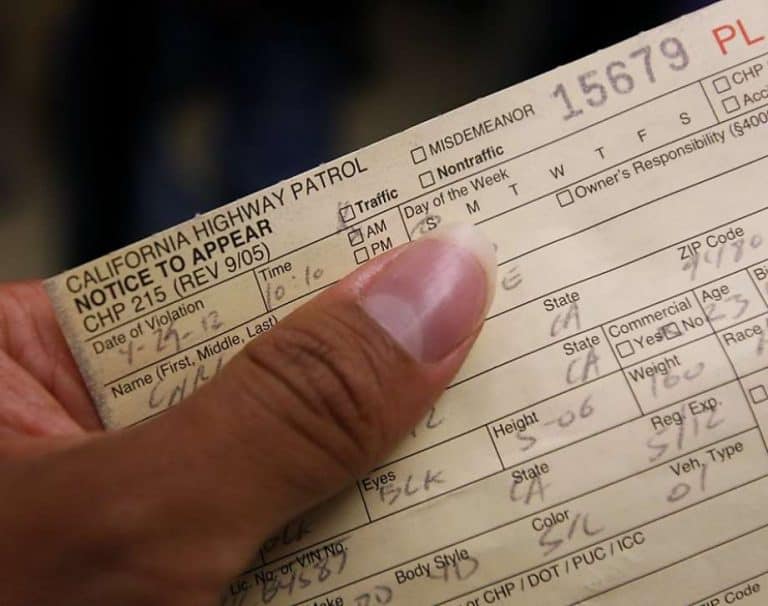 15679 PL
CALIFORNIA HIGHWAY PATROL
NOTICE TO APPEAR
CHP 215 (REV 9/05)
MISDEMEANOR
Traffic Nontraffic
CHP
Date of Violation
4-29-12
Time
10:10
AM
PM
Day of the Week
S M T W T F S
Owner's Responsibility (§400
Name (First, Middle, Last)
State
CA
ZIP Code
State
CA
Commercial
Yes No
Age
23
Race
Eyes
BLK
Height
5-06
Weight
160
State
CA
Reg. Exp.
5/12
Veh. Type
01
Lic. No. or VIN No.
Body Style
4D
Color
SIL
or CHP / DOT / PUC / ICC
ZIP Code